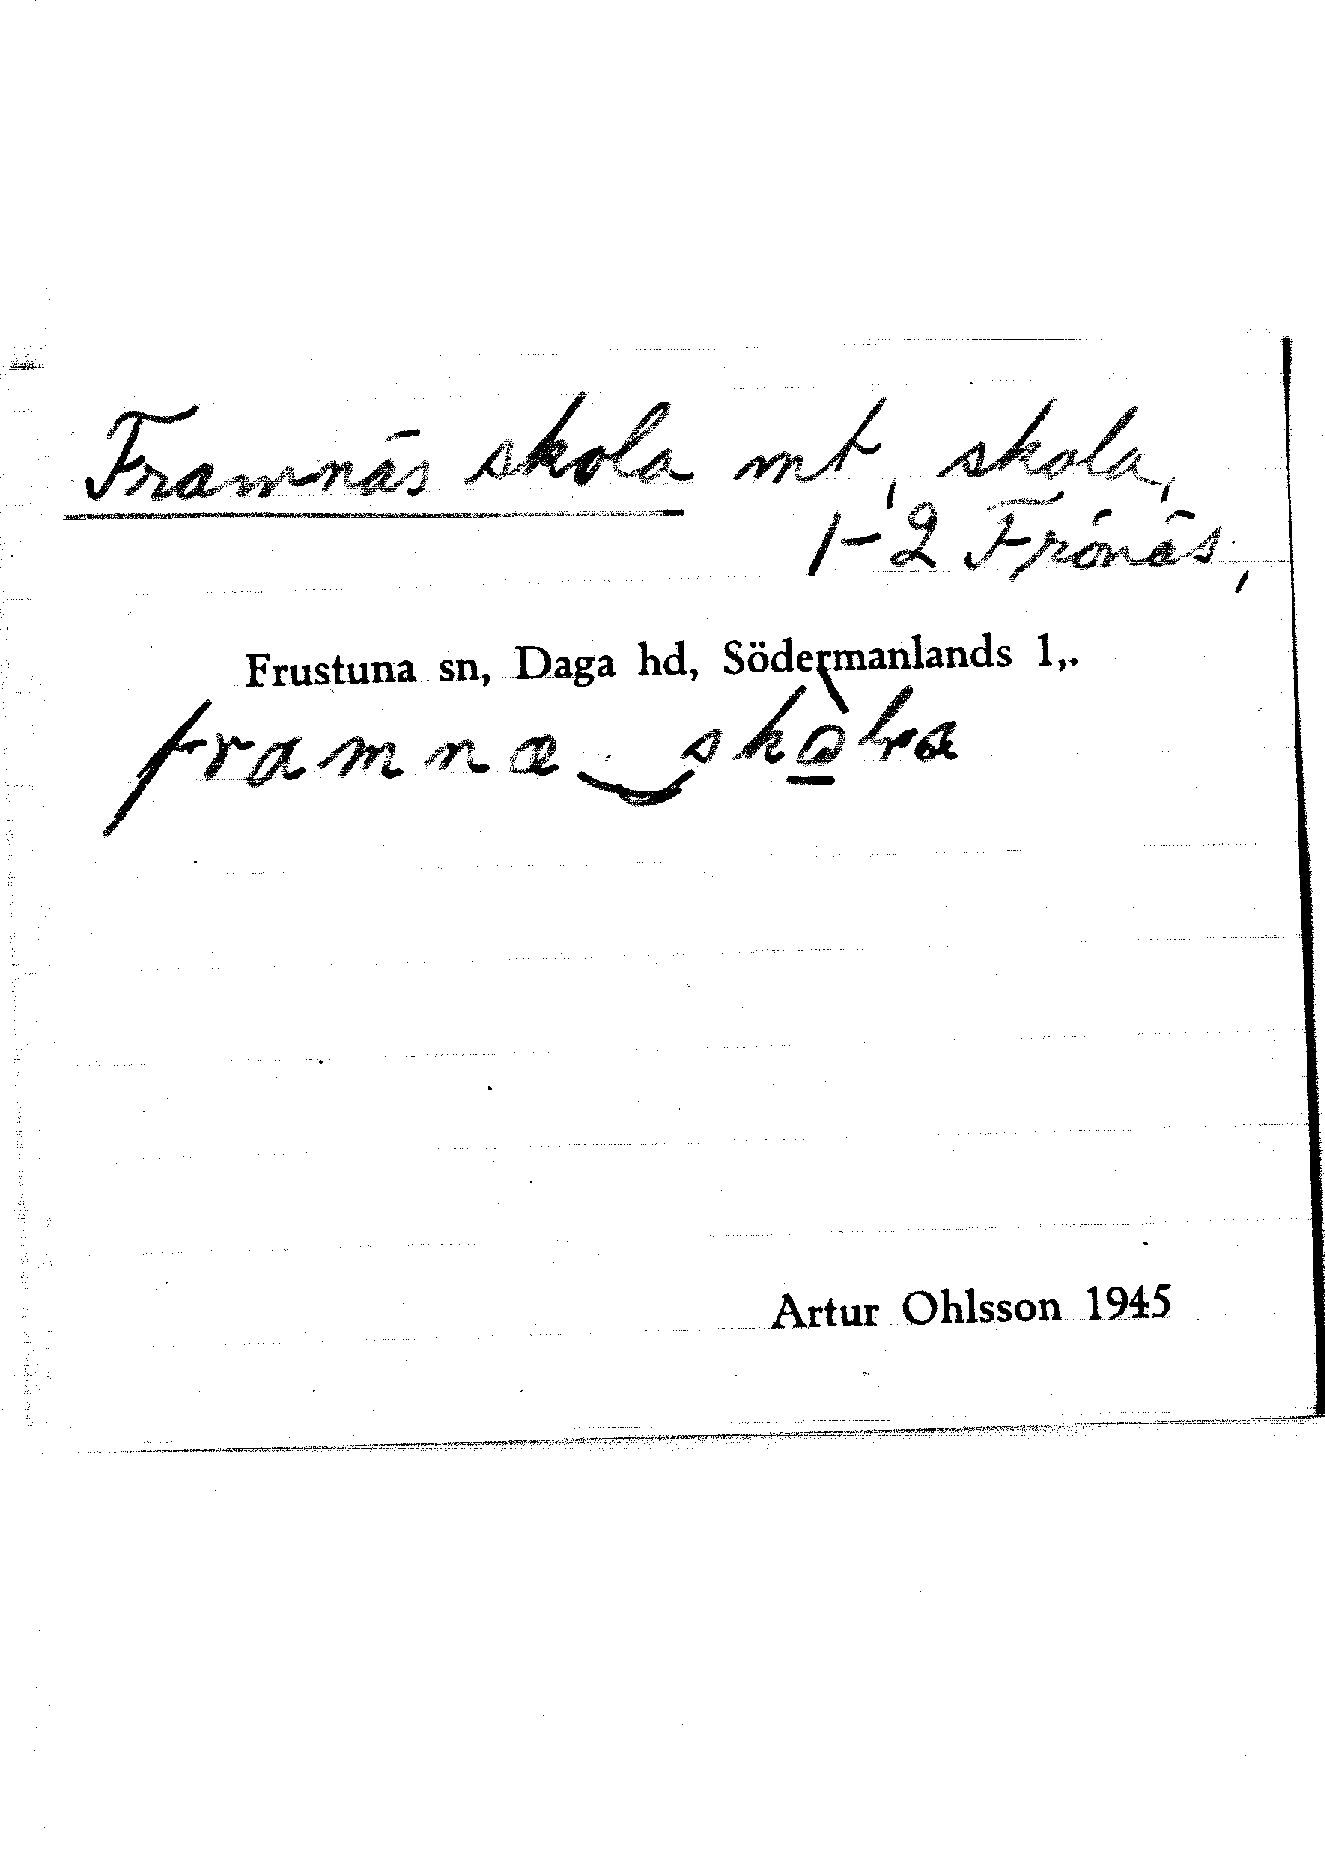 Framnäs skola mt, skola,
1-2 Frönäs,
Frustuna sn, Daga hd, Södermanlands l,.
framnæ skola
Artur Ohlsson 1945